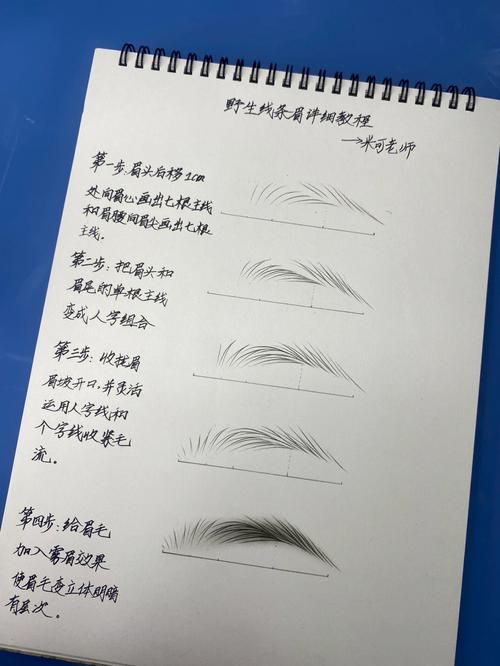 野生线条眉详细教程
→米可老师
第一步:眉头后移1cm
处间眉心画出七根主线
和眉腰间眉尖画出七根
主线。
第二步:把眉头和
眉尾的单根主线
变成人字组合
第三步:收拢眉
眉坡开口,并灵活
运用人字线和
个字线收紧毛
流。
第四步:给眉毛
加入雾眉效果
使眉毛变立体明暗
有层次。